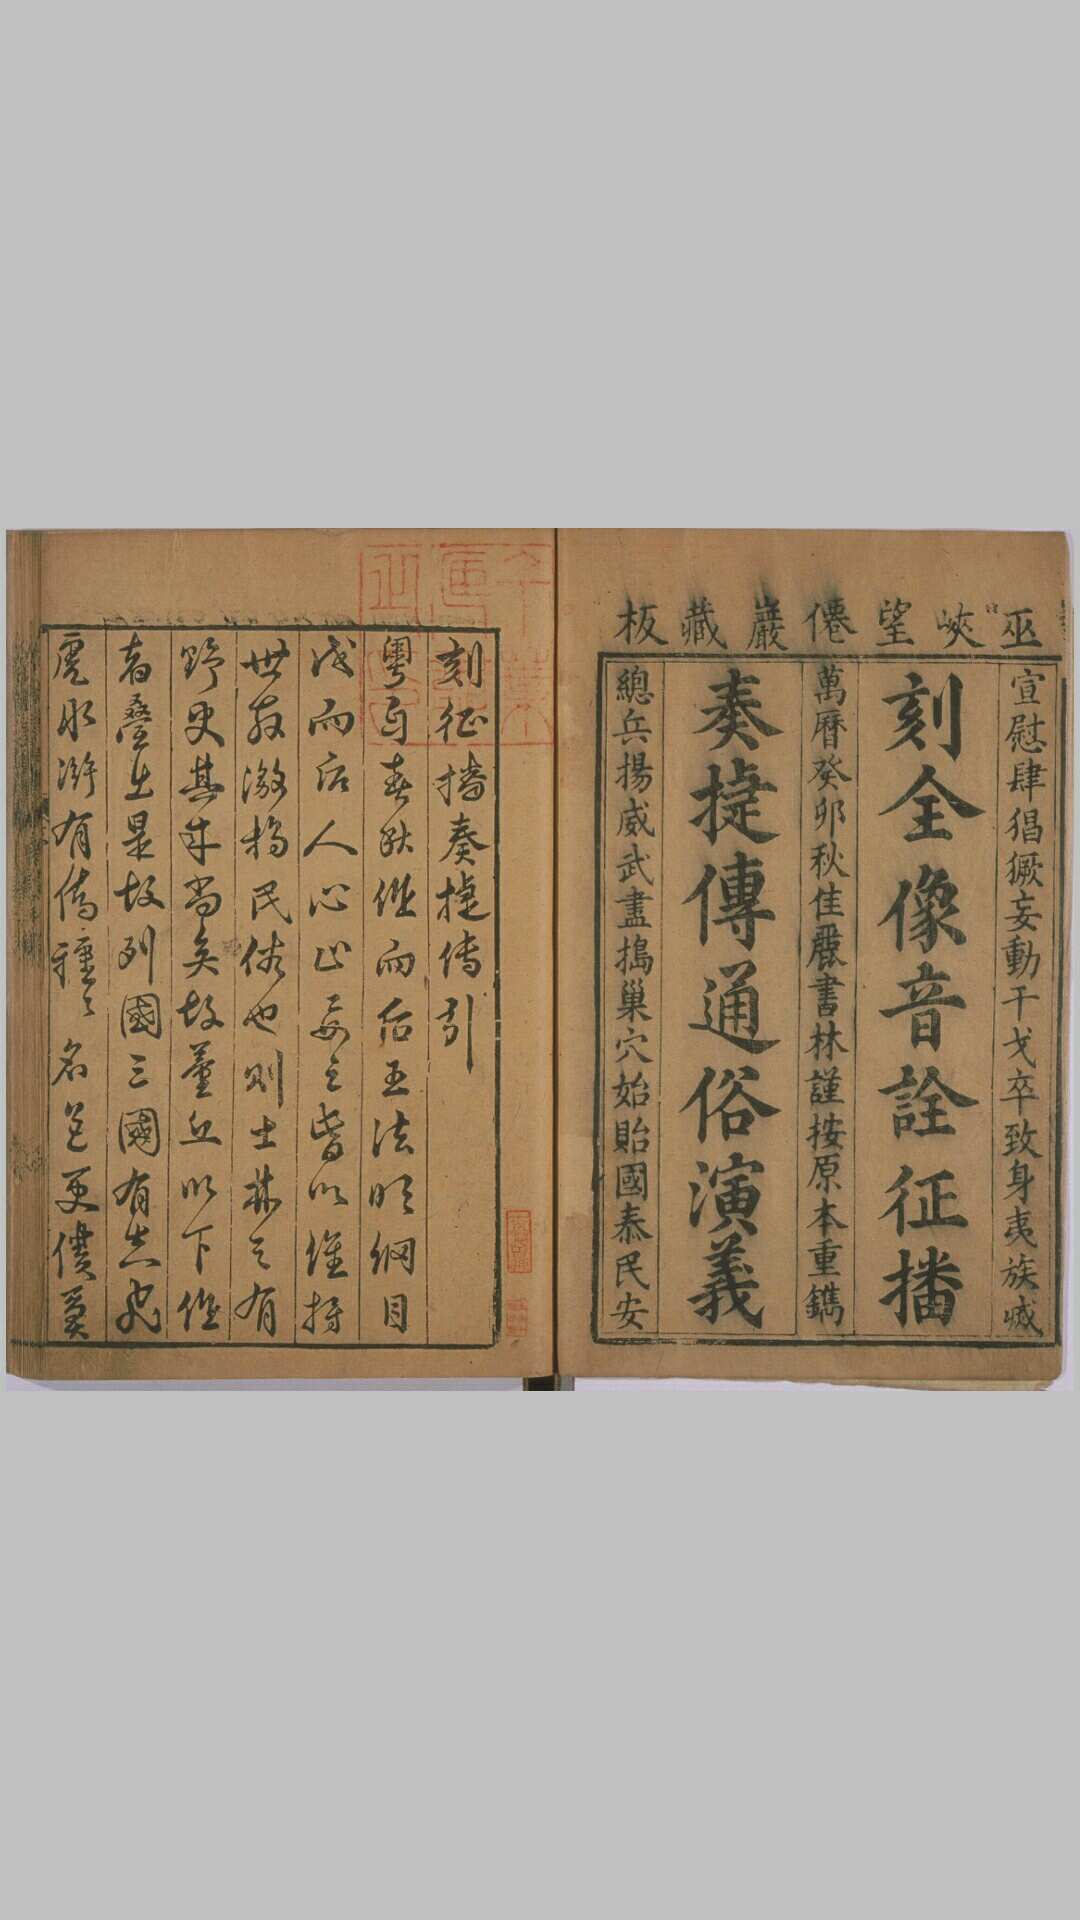 巫峽望僊巖藏板
宣慰肆猖獗妄動干戈卒致身夷族滅
刻全像音詮征播
萬曆癸卯秋佳麗書林謹按原本重鐫
奏捷傳通俗演義
總兵揚威武盡搗巢穴始貽國泰民安
刻征播奏捷傳引
粵自春秋作而后王法明綱目
成而后人心正要之皆以維持
世教激揚民俗也則士林之有
野史其来尚矣故丘以下作
者疊出是故列國三國有志
水滸有傳種々名色更僕莫